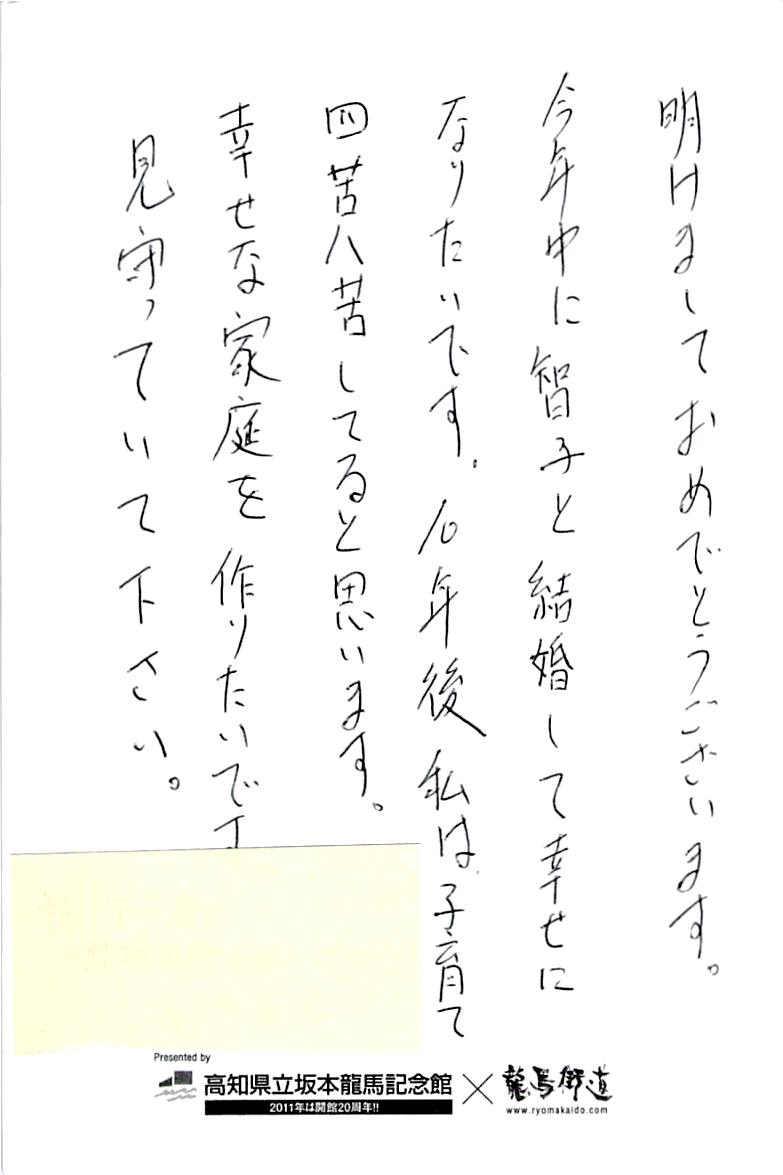 明けましておめでとうございます。
今年中に智子と結婚して幸せに
なりたいです。10年後私は子育て
四苦八苦してると思います。
幸せな家庭を作りたいです
見守っていて下さい。
Presented by
高知県立坂本龍馬記念館×龍馬街道
2011年は開館20周年!!
www.ryomakaido.com